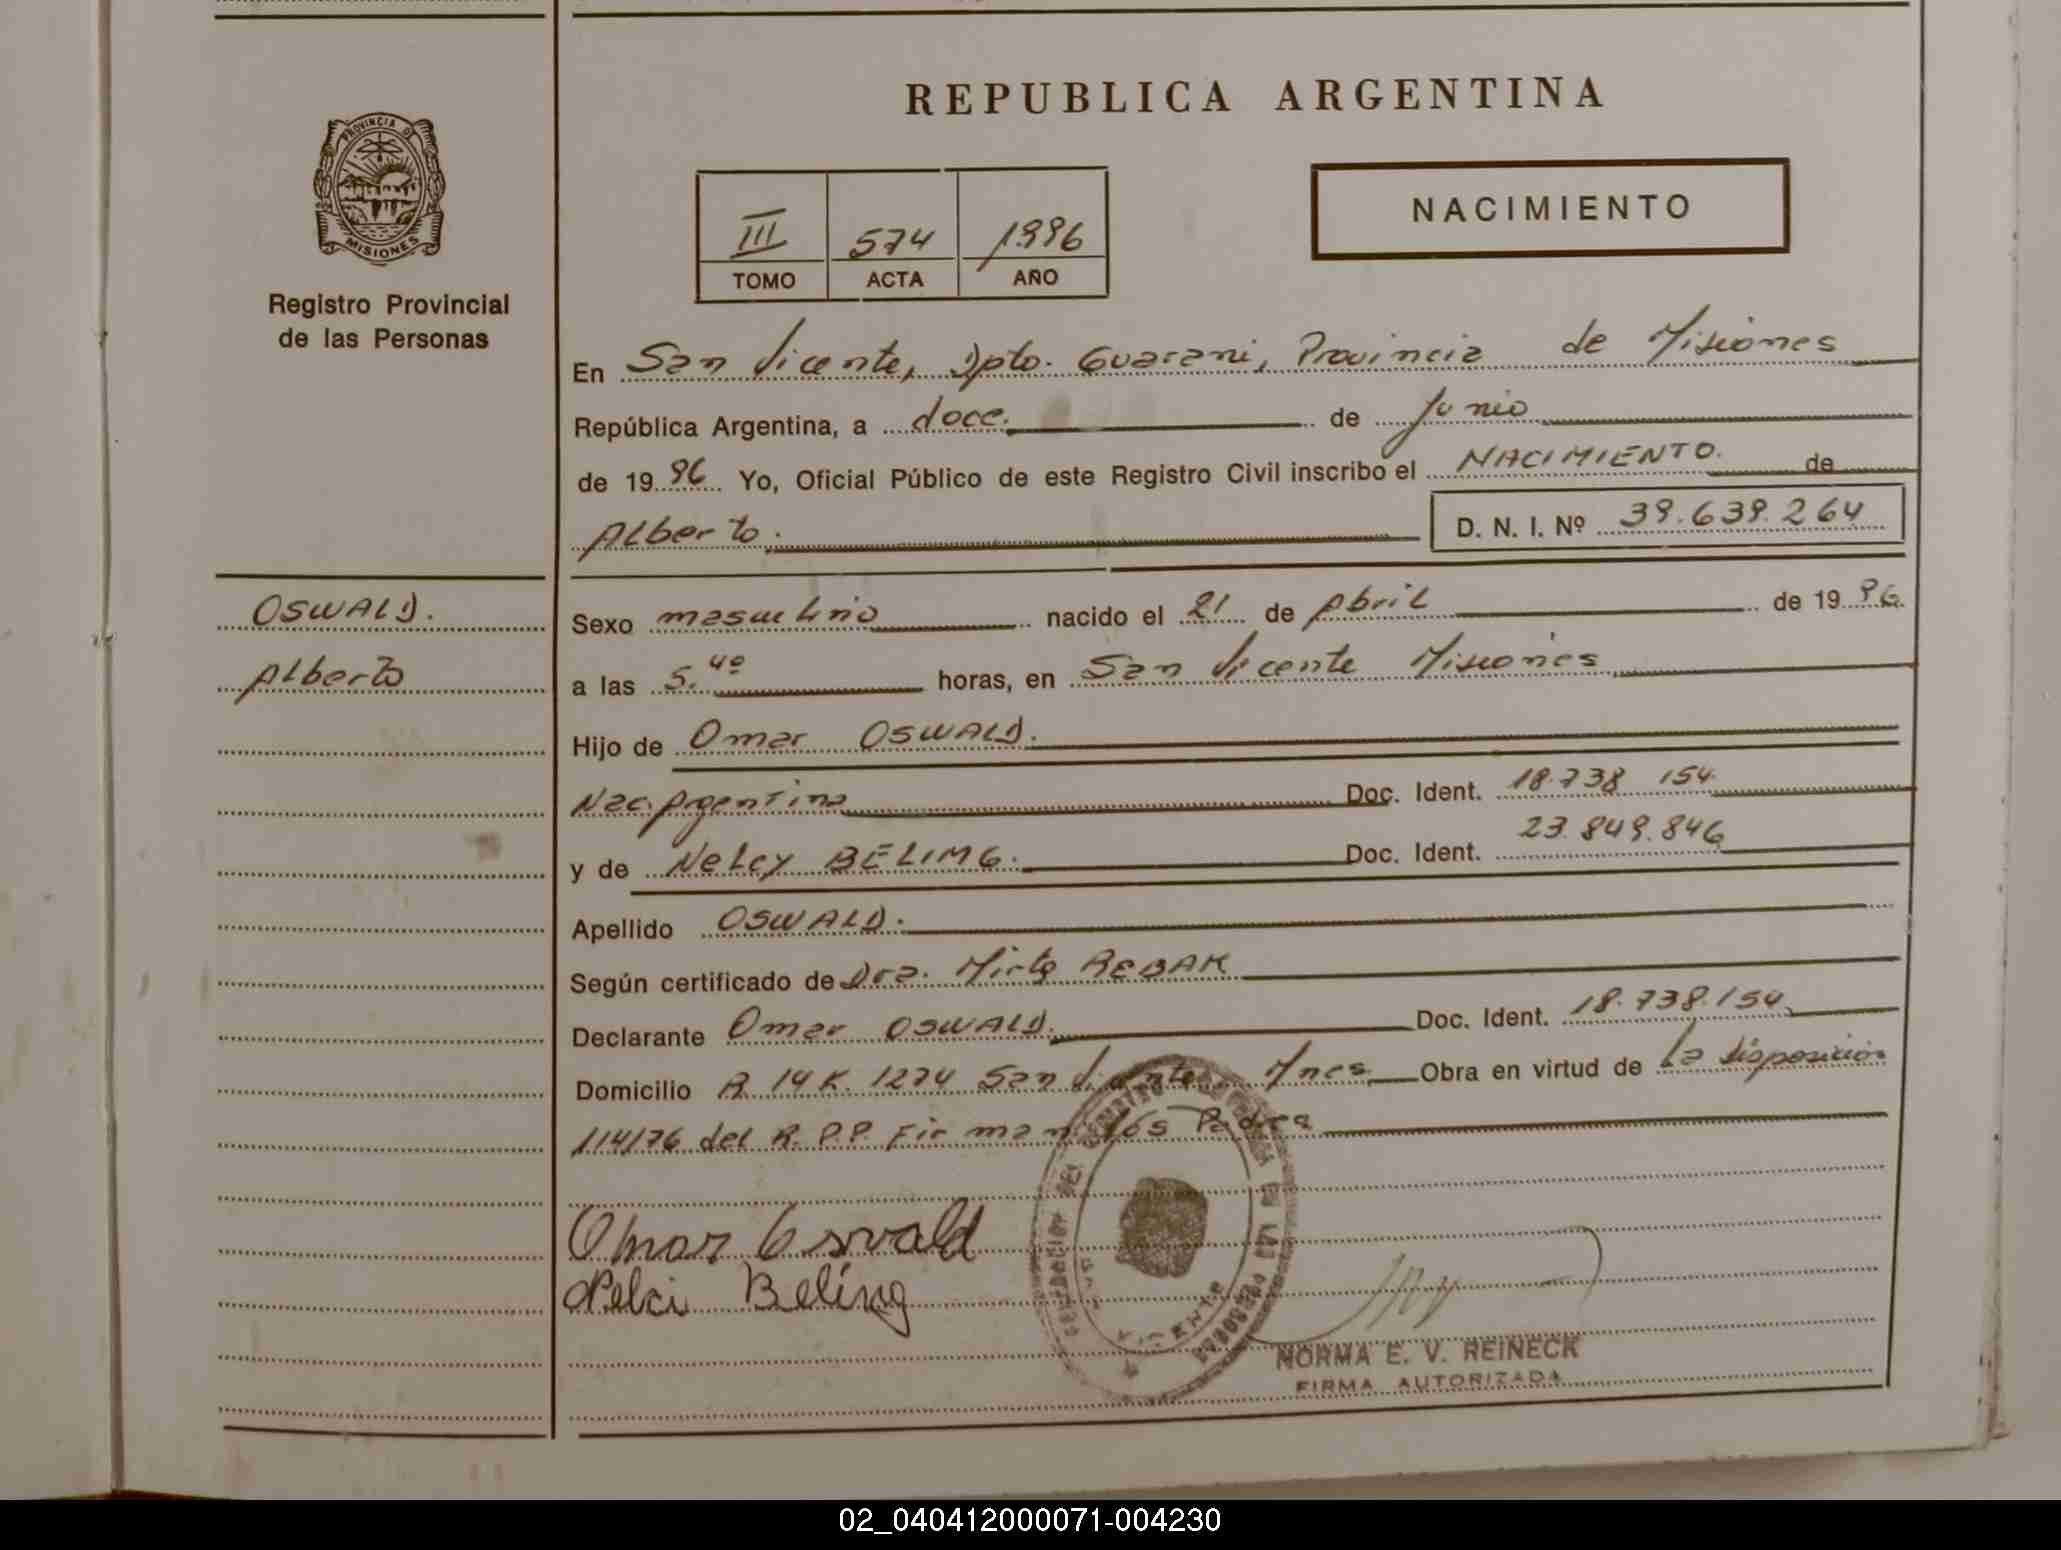 REPUBLICA ARGENTINA
PROVINCIA D
MISIONES
Registro Provincial
de las Personas
III 574 1996
TOMO ACTA AÑO
NACIMIENTO
En San Vicente, Dpto. Guarani, Provincia de Misiones
República Argentina, a doce. de Junio
de 19 96 Yo, Oficial Público de este Registro Civil inscribo el NACIMIENTO. de
Alberto. D. N. I. Nº 39.639.264
OSWALD.
Alberto
Sexo masculino nacido el 21 de Abril de 19 96.
a las 5.40 horas, en San Vicente Misiones
Hijo de Omar OSWALD.
Nac. Argentina Doc. Ident. 18.738 154.
y de Nelcy BELING. Doc. Ident. 23.849.846
Apellido OSWALD.
Según certificado de Dra. Mirta REBAK
Declarante Omar OSWALD. Doc. Ident. 18.738.154
Domicilio R. 14 K. 1274 San Vicente Mnes. Obra en virtud de La disposición
114/76 del R. P.P. Firman los Padres
Omar Osvald
Nelci Beling
VICENTE
NORMA E. V. REINECK
FIRMA AUTORIZADA
02_040412000071-004230